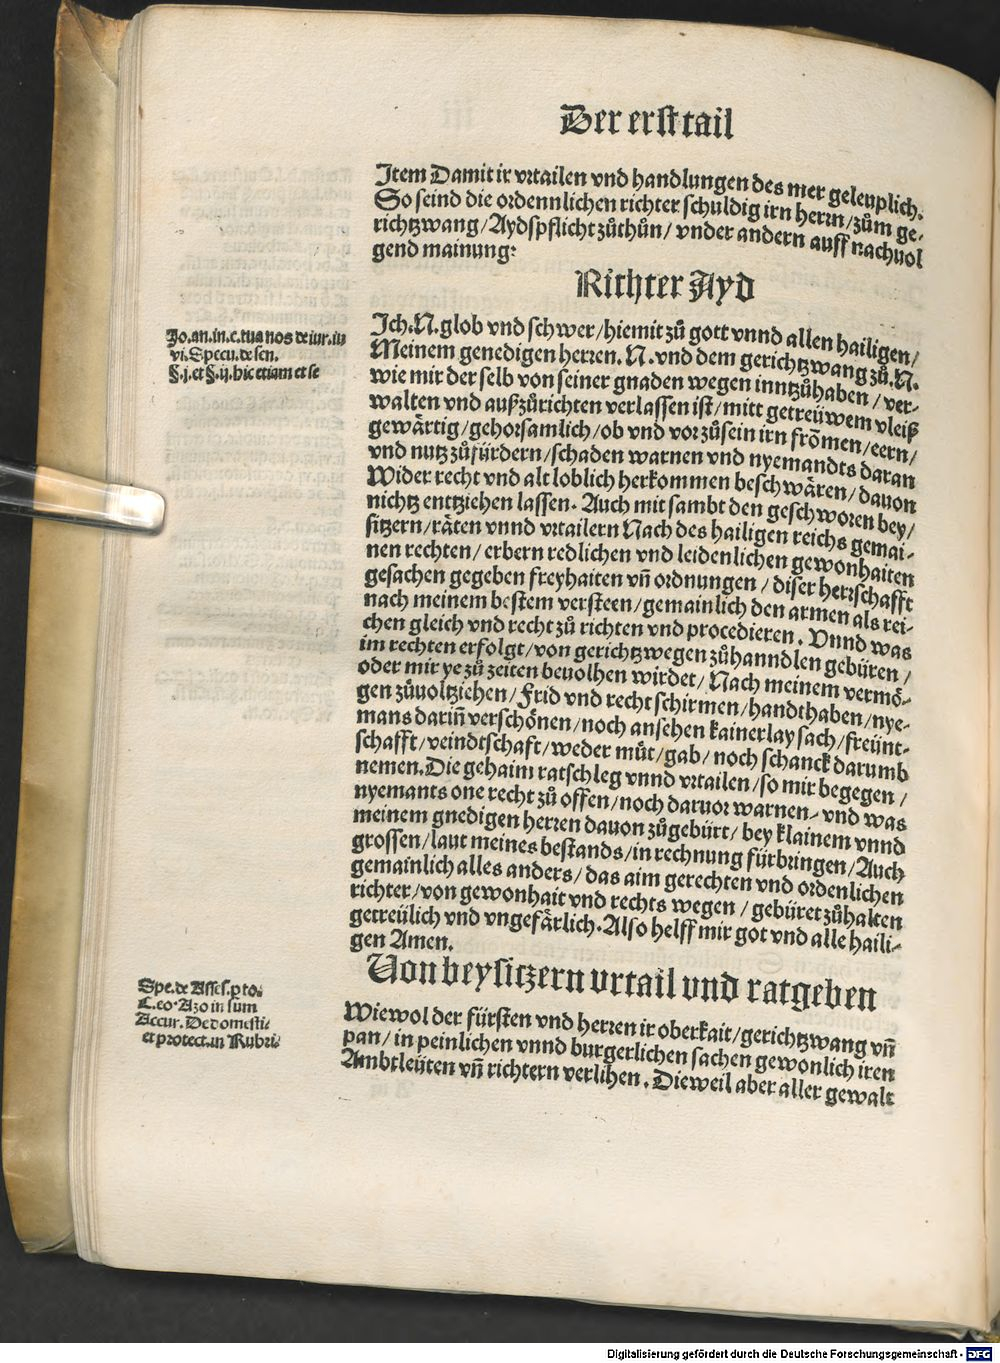 Der erst tail
Item Damit ir vrtailen vnd handlungen des mer geleuplich.
So seind die ordennlichen richter schuldig irn herrn/zům ge⸗
richtzwang/Aydspflicht zůthůn/ vnder andern auff nachuol
gend mainung:
Richter Ayd
Jo.an.in.c.tua nos de iur.iu
vi.Specu.de sen.
§.j.et §.ij.hic etiam et se
Ich.N.glob vnd schwer/hiemit zů gott vnnd allen hailigen/
Meinem genedigen herren. N.vnd dem gerichtzwang zů.N.
wie mir der selb von seiner gnaden wegen inntzůhaben/ ver⸗
walten vnd außzůrichten verlassen ist/mitt getreüwem vleiß
gewärtig/gehorsamlich/ob vnd vor zůsein irn frömen/eern/
vnd nutz zůfürdern/schaden warnen vnd nyemandts daran
Wider recht vnd alt loblich herkommen beschwären/dauon
nichtz enttziehen lassen. Auch mit sambt den geschworen bey/
sitzern/räten vnnd vrtailern Nach des hailigen reichs gemai⸗
nen rechten/ erbern redlichen vnd leidenlichen gewonhaiten
gesachen gegeben freyhaiten vn̄ ordnungen/ diser herrschafft
nach meinem bestem versteen/gemainlich den armen als rei⸗
chen gleich vnd recht zů richten vnd procedieren. Vnnd was
im rechten erfolgt/von gerichtzwegen zůhanndlen gebüren/
oder mir ye zů zeiten beuolhen wirdet/ Nach meinem vermö⸗
gen zůuoltziehen/ Frid vnd recht schirmen/handthaben/nye⸗
mans darin̄ verschönen/noch ansehen kainerlay sach/freünt⸗
schafft/veindtschaft/weder műt/gab/ noch schanck darumb
nemen.Die gehaim ratschleg vnnd vrtailen/so mir begegen/
nyemants one recht zů offen/noch daruor warnen⸗ vnd was
meinem gnedigen herren dauon zůgebürt/ bey klainem vnnd
grossen/laut meines bestands/in rechnung fürbringen/Auch
gemainlich alles anders/ das aim gerechten vnd ordenlichen
richter/von gewonhait vnd rechts wegen/ gebüret zůhalten
getreülich vnd vngefärlich.Also helff mir got vnd alle haili⸗
gen Amen.
Von beysitzern vrtail vnd ratgeben
Spe.de Asses.pto.
C.eo.Azo in sum
Accur. De domesti⸗
et protect.in Rubri⸗
Wiewol der fürsten vnd herren ir oberkait/gerichtzwang vn̄
pan/ in peinlichen vnnd burgerlichen sachen gewonlich iren
Ambtleüten vn̄ richtern verlihen. Dieweil aber aller gewalt
Digitalisierung gefördert durch die Deutsche Forschungsgemeinschaft - DFG